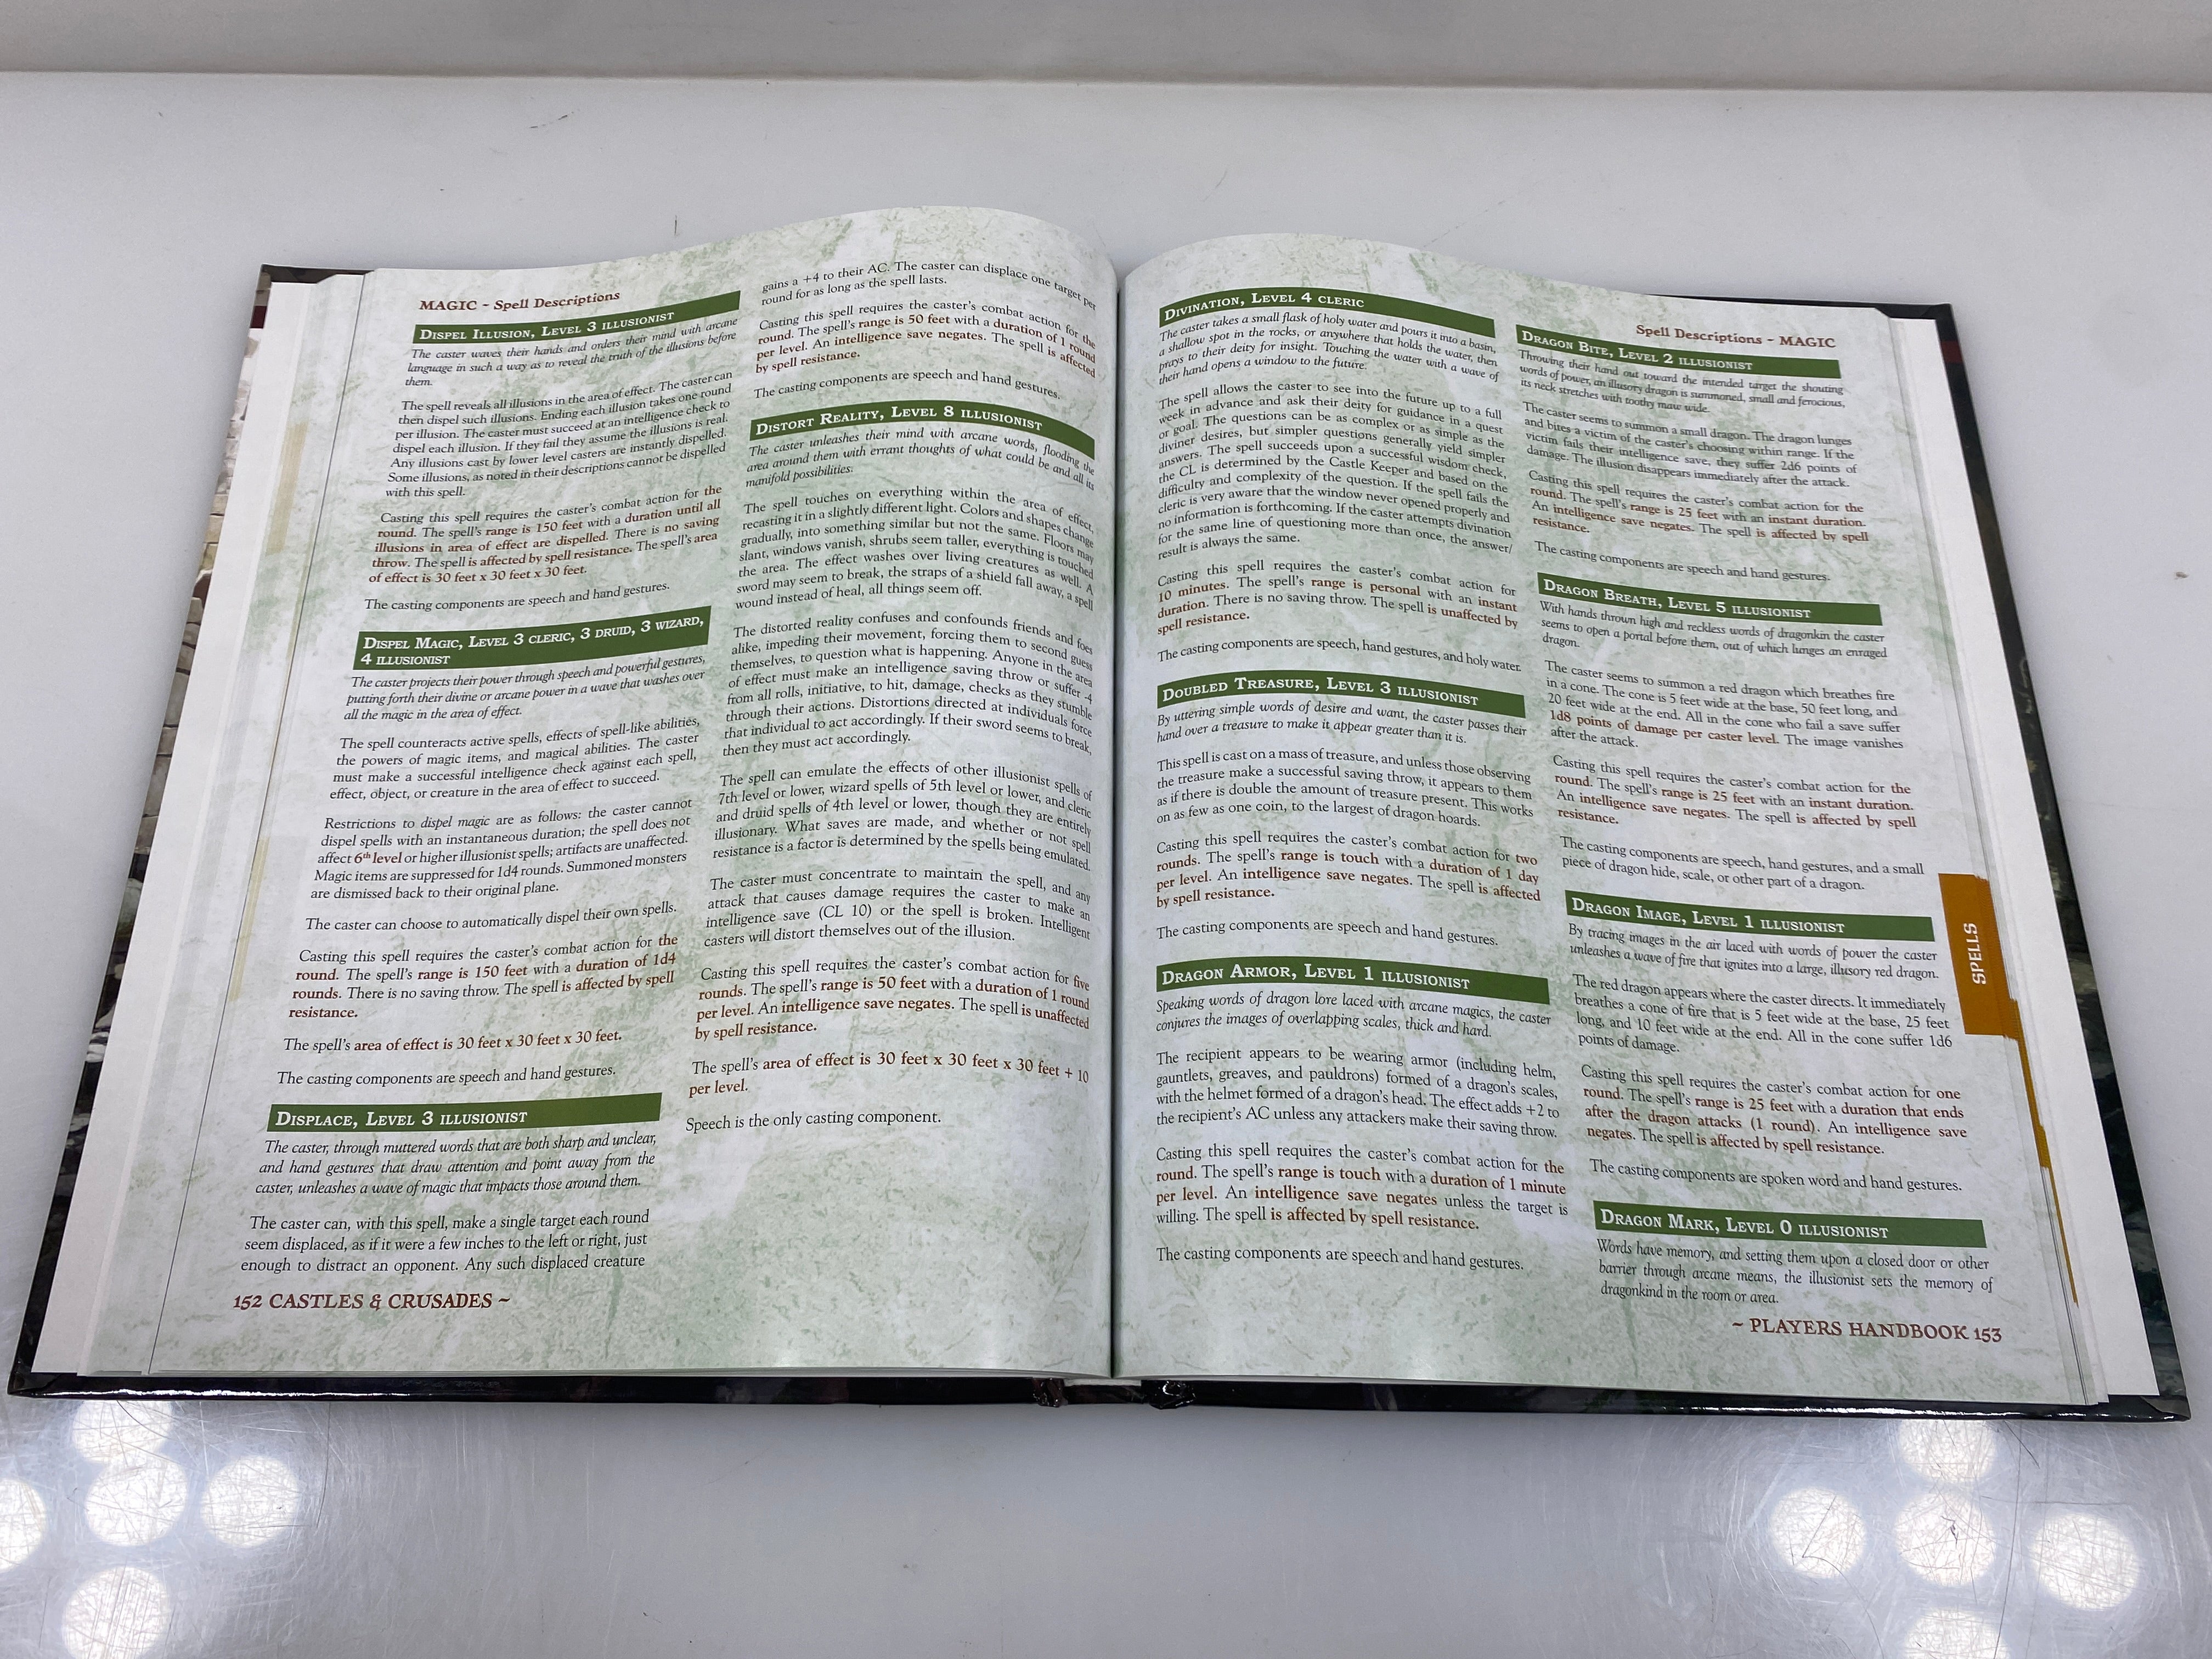 MAGIC - Spell Descriptions
DISPEL ILLUSION, LEVEL 3 ILLUSIONIST
The caster waves their hands and orders their mind with arcane
language in such a way as to reveal the truth of the illusions before
them.
The spell reveals all illusions in the area of effect. The caster can
then dispel such illusions. Ending each illusion takes one round
per illusion. The caster must succeed at an intelligence check to
dispel each illusion. If they fail they assume the illusions is real.
Any illusions cast by lower level casters are instantly dispelled.
Some illusions, as noted in their descriptions cannot be dispelled
with this spell.
Casting this spell requires the caster's combat action for the
round. The spell's range is 150 feet with a duration until all
illusions in area of effect are dispelled. There is no saving
throw. The spell is affected by spell resistance. The spell's area
of effect is 30 feet x 30 feet x 30 feet.
The casting components are speech and hand gestures.
DISPEL MAGIC, LEVEL 3 CLERIC, 3 DRUID, 3 WIZARD,
4 ILLUSIONIST
The caster projects their power through speech and powerful gestures,
putting forth their divine or arcane power in a wave that washes over
all the magic in the area of effect.
The spell counteracts active spells, effects of spell-like abilities,
the powers of magic items, and magical abilities. The caster
must make a successful intelligence check against each spell,
effect, object, or creature in the area of effect to succeed.
Restrictions to dispel magic are as follows: the caster cannot
dispel spells with an instantaneous duration; the spell does not
affect 6th level or higher illusionist spells; artifacts are unaffected.
Magic items are suppressed for 1d4 rounds. Summoned monsters
are dismissed back to their original plane.
The caster can choose to automatically dispel their own spells.
Casting this spell requires the caster's combat action for the
round. The spell's range is 150 feet with a duration of 1d4
rounds. There is no saving throw. The spell is affected by spell
resistance.
The spell's area of effect is 30 feet x 30 feet x 30 feet.
The casting components are speech and hand gestures.
DISPLACE, LEVEL 3 ILLUSIONIST
The caster, through muttered words that are both sharp and unclear,
and hand gestures that draw attention and point away from the
caster, unleashes a wave of magic that impacts those around them.
The caster can, with this spell, make a single target each round
seem displaced, as if it were a few inches to the left or right, just
enough to distract an opponent. Any such displaced creature
152 CASTLES & CRUSADES ~
gains a +4 to their AC. The caster can displace one target per
round for as long as the spell lasts.
Casting this spell requires the caster's combat action for the
round. The spell's range is 50 feet with a duration of 1 round
per level. An intelligence save negates. The spell is affected
by spell resistance.
The casting components are speech and hand gestures.
DISTORT REALITY, LEVEL 8 ILLUSIONIST
The caster unleashes their mind with arcane words, flooding the
area around them with errant thoughts of what could be and all its
manifold possibilities.
The spell touches on everything within the area of effect,
recasting it in a slightly different light. Colors and shapes change
gradually, into something similar but not the same. Floors may
slant, windows vanish, shrubs seem taller, everything is touched
the area. The effect washes over living creatures as well. A
sword may seem to break, the straps of a shield fall away, a spell
wound instead of heal, all things seem off.
The distorted reality confuses and confounds friends and foes
alike, impeding their movement, forcing them to second guess
themselves, to question what is happening. Anyone in the area
of effect must make an intelligence saving throw or suffer -4
from all rolls, initiative, to hit, damage, checks as they stumble
through their actions. Distortions directed at individuals force
that individual to act accordingly. If their sword seems to break,
then they must act accordingly.
The spell can emulate the effects of other illusionist spells of
7th level or lower, wizard spells of 5th level or lower, and cleric
and druid spells of 4th level or lower, though they are entirely
illusionary. What saves are made, and whether or not spell
resistance is a factor is determined by the spells being emulated.
The caster must concentrate to maintain the spell, and any
attack that causes damage requires the caster to make an
intelligence save (CL 10) or the spell is broken. Intelligent
casters will distort themselves out of the illusion.
Casting this spell requires the caster's combat action for five
rounds. The spell's range is 50 feet with a duration of 1 round
per level. An intelligence save negates. The spell is unaffected
by spell resistance.
The spell's area of effect is 30 feet x 30 feet x 30 feet + 10
per level.
Speech is the only casting component.
DIVINATION, LEVEL 4 CLERIC
The caster takes a small flask of holy water and pours it into a basin,
a shallow spot in the rocks, or anywhere that holds the water, then
prays to their deity for insight. Touching the water with a wave of
their hand opens a window to the future.
The spell allows the caster to see into the future up to a full
week in advance and ask their deity for guidance in a quest
or goal. The questions can be as complex or as simple as the
diviner desires, but simpler questions generally yield simpler
answers. The spell succeeds upon a successful wisdom check,
the CL is determined by the Castle Keeper and based on the
difficulty and complexity of the question. If the spell fails the
cleric is very aware that the window never opened properly and
no information is forthcoming. If the caster attempts divination
for the same line of questioning more than once, the answer/
result is always the same.
Casting this spell requires the caster's combat action for
10 minutes. The spell's range is personal with an instant
duration. There is no saving throw. The spell is unaffected by
spell resistance.
The casting components are speech, hand gestures, and holy water.
DOUBLED TREASURE, LEVEL 3 ILLUSIONIST
By uttering simple words of desire and want, the caster passes their
hand over a treasure to make it appear greater than it is.
This spell is cast on a mass of treasure, and unless those observing
the treasure make a successful saving throw, it appears to them
as if there is double the amount of treasure present. This works
on as few as one coin, to the largest of dragon hoards.
Casting this spell requires the caster's combat action for two
rounds. The spell's range is touch with a duration of 1 day
per level. An intelligence save negates. The spell is affected
by spell resistance.
The casting components are speech and hand gestures.
DRAGON ARMOR, LEVEL 1 ILLUSIONIST
Speaking words of dragon lore laced with arcane magics, the caster
conjures the images of overlapping scales, thick and hard.
The recipient appears to be wearing armor (including helm,
gauntlets, greaves, and pauldrons) formed of a dragon's scales,
with the helmet formed of a dragon's head. The effect adds +2 to
the recipient's AC unless any attackers make their saving throw.
Casting this spell requires the caster's combat action for the
round. The spell's range is touch with a duration of 1 minute
per level. An intelligence save negates unless the target is
willing. The spell is affected by spell resistance.
The casting components are speech and hand gestures.
Spell Descriptions - MAGIC
DRAGON BITE, LEVEL 2 ILLUSIONIST
Throwing their hand out toward the intended target the shouting
words of power, an illusory dragon is summoned, small and ferocious,
its neck stretches with toothy maw wide.
The caster seems to summon a small dragon. The dragon lunges
and bites a victim of the caster's choosing within range. If the
victim fails their intelligence save, they suffer 2d6 points of
damage. The illusion disappears immediately after the attack.
Casting this spell requires the caster's combat action for the
round. The spell's range is 25 feet with an instant duration.
An intelligence save negates. The spell is affected by spell
resistance.
The casting components are speech and hand gestures.
DRAGON BREATH, LEVEL 5 ILLUSIONIST
With hands thrown high and reckless words of dragonkin the caster
seems to open a portal before them, out of which lunges an enraged
dragon.
The caster seems to summon a red dragon which breathes fire
in a cone. The cone is 5 feet wide at the base, 50 feet long, and
20 feet wide at the end. All in the cone who fail a save suffer
1d8 points of damage per caster level. The image vanishes
after the attack.
Casting this spell requires the caster's combat action for the
round. The spell's range is 25 feet with an instant duration.
An intelligence save negates. The spell is affected by spell
resistance.
The casting components are speech, hand gestures, and a small
piece of dragon hide, scale, or other part of a dragon.
DRAGON IMAGE, LEVEL 1 ILLUSIONIST
By tracing images in the air laced with words of power the caster
unleashes a wave of fire that ignites into a large, illusory red dragon.
The red dragon appears where the caster directs. It immediately
breathes a cone of fire that is 5 feet wide at the base, 25 feet
long, and 10 feet wide at the end. All in the cone suffer 1d6
points of damage.
Casting this spell requires the caster's combat action for one
round. The spell's range is 25 feet with a duration that ends
after the dragon attacks (1 round). An intelligence save
negates. The spell is affected by spell resistance.
The casting components are spoken word and hand gestures.
DRAGON MARK, LEVEL 0 ILLUSIONIST
Words have memory, and setting them upon a closed door or other
barrier through arcane means, the illusionist sets the memory of
dragonkind in the room or area.
~ PLAYERS HANDBOOK 153
SPELLS